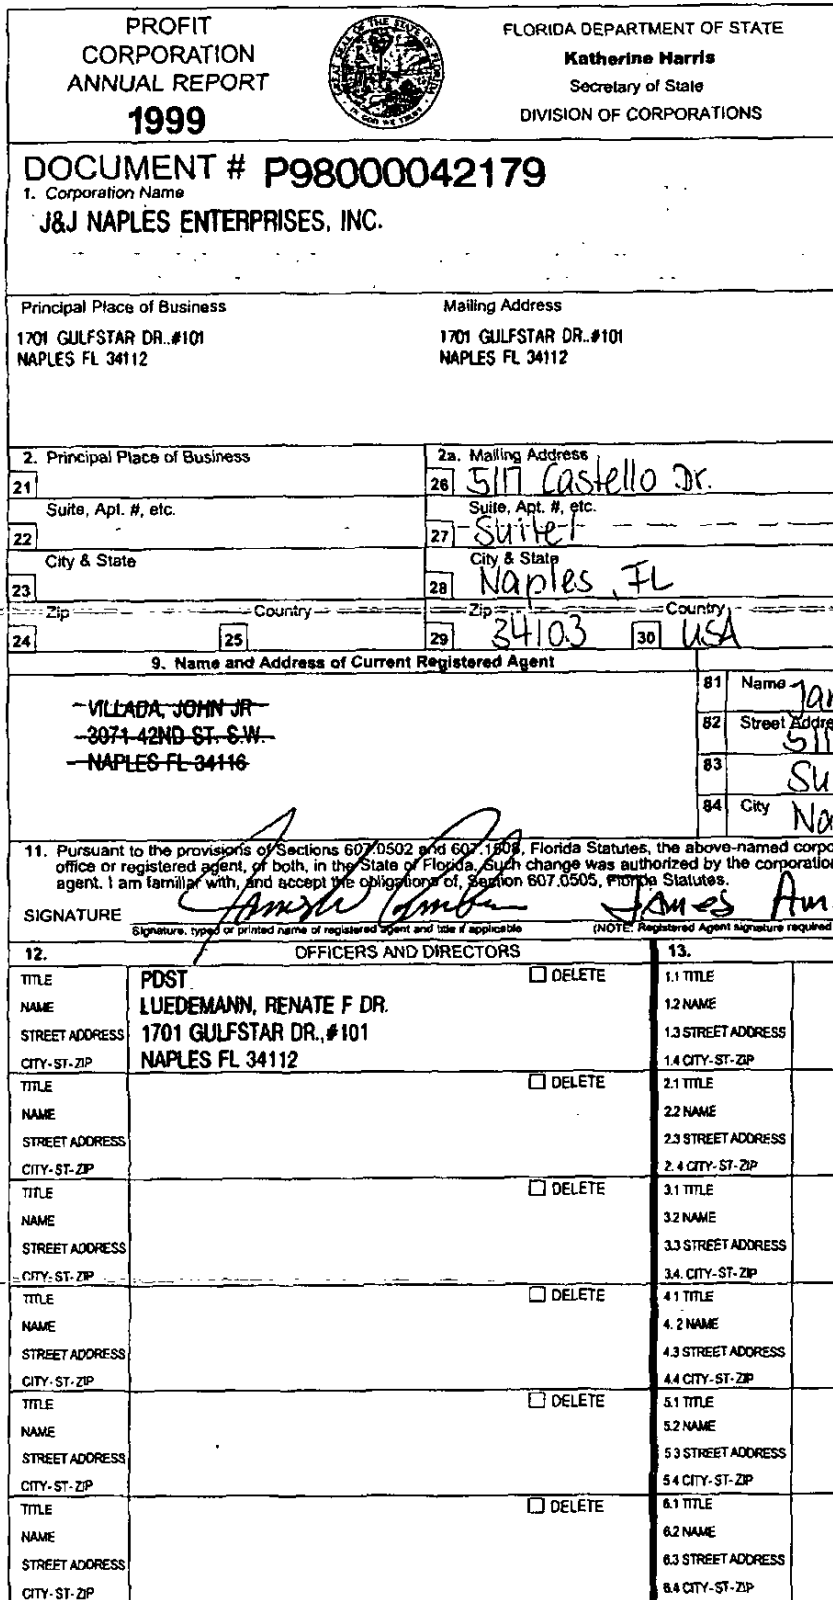 PROFIT
CORPORATION
ANNUAL REPORT
1999
FLORIDA DEPARTMENT OF STATE
Katherine Harris
Secretary of State
DIVISION OF CORPORATIONS
DOCUMENT # P98000042179
1. Corporation Name
J&J NAPLES ENTERPRISES, INC.
Principal Place of Business
1701 GULFSTAR DR..#101
NAPLES FL 34112
Mailing Address
1701 GULFSTAR DR..#101
NAPLES FL 34112
2. Principal Place of Business
21
Suite, Apt. #, etc.
22
City & State
23
Zip
24
Country
25
2a. Mailing Address
26 5117 Castello Dr.
Suite, Apt. #, etc.
27 Suite 1
City & State
28 Naples, FL
Zip
29 34103
Country
30 USA
9. Name and Address of Current Registered Agent
VILLADA, JOHN JR
3071 42ND ST. S.W.
NAPLES FL 34116
81 Name
82 Street Addre
83 Su
84 City
11. Pursuant to the provisions of Sections 607.0502 and 607.1508, Florida Statutes, the above-named corpo
office or registered agent, or both, in the State of Florida. Such change was authorized by the corporation
agent. I am familiar with, and accept the obligations of, Section 607.0505, Florida Statutes.
SIGNATURE
James
Signature, typed or printed name of registered agent and title if applicable
(NOTE: Registered Agent signature required
12. OFFICERS AND DIRECTORS
13.
TITLE PDST DELETE
NAME LUEDEMANN, RENATE F DR.
STREET ADDRESS 1701 GULFSTAR DR.,#101
CITY-ST-ZIP NAPLES FL 34112
1.1 TITLE
1.2 NAME
1.3 STREET ADDRESS
1.4 CITY-ST-ZIP
TITLE DELETE
NAME
STREET ADDRESS
CITY-ST-ZIP
2.1 TITLE
2.2 NAME
2.3 STREET ADDRESS
2.4 CITY-ST-ZIP
TITLE DELETE
NAME
STREET ADDRESS
CITY-ST-ZIP
3.1 TITLE
3.2 NAME
3.3 STREET ADDRESS
3.4. CITY-ST-ZIP
TITLE DELETE
NAME
STREET ADDRESS
CITY-ST-ZIP
4.1 TITLE
4.2 NAME
4.3 STREET ADDRESS
4.4 CITY-ST-ZIP
TITLE DELETE
NAME
STREET ADDRESS
CITY-ST-ZIP
5.1 TITLE
5.2 NAME
5.3 STREET ADDRESS
5.4 CITY-ST-ZIP
TITLE DELETE
NAME
STREET ADDRESS
CITY-ST-ZIP
6.1 TITLE
6.2 NAME
6.3 STREET ADDRESS
6.4 CITY-ST-ZIP